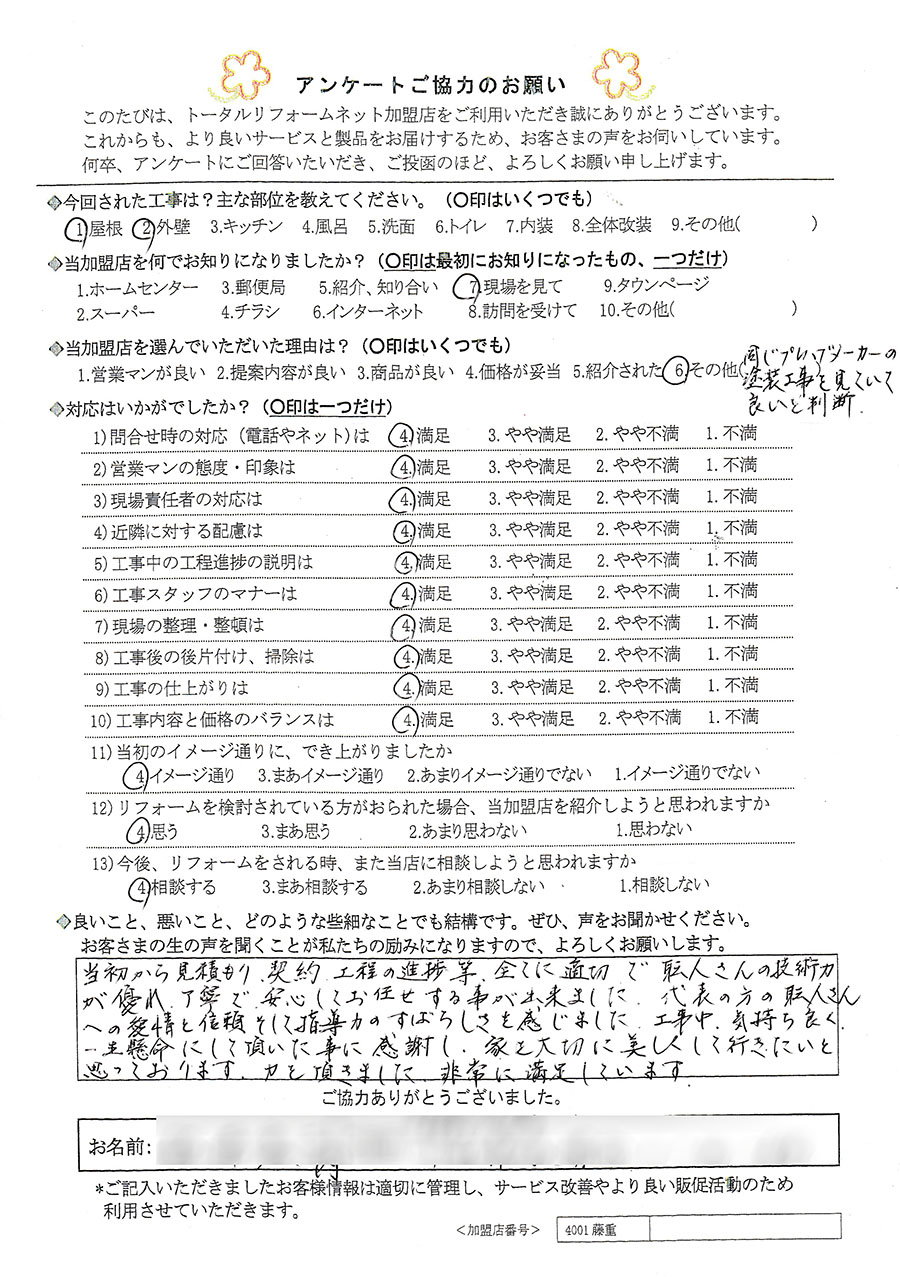 アンケートご協力のお願い
このたびは、トータルリフォームネット加盟店をご利用いただき誠にありがとうございます。
これからも、より良いサービスと製品をお届けするため、お客さまの声をお伺いしています。
何卒、アンケートにご回答いたいだき、ご投函のほど、よろしくお願い申し上げます。
◈今回された工事は？主な部位を教えてください。（〇印はいくつでも）
1.屋根 2.外壁 3.キッチン 4.風呂 5.洗面 6.トイレ 7.内装 8.全体改装 9.その他( )
◈当加盟店を何でお知りになりましたか？（〇印は最初にお知りになったもの、一つだけ）
1.ホームセンター 3.郵便局 5.紹介、知り合い 7.現場を見て 9.タウンページ
2.スーパー 4.チラシ 6.インターネット 8.訪問を受けて 10.その他( )
◈当加盟店を選んでいただいた理由は？（〇印はいくつでも）
1.営業マンが良い 2.提案内容が良い 3.商品が良い 4.価格が妥当 5.紹介された 6.その他(
同じプレハブメーカーの
塗装工事を見ていて
良いと判断.
◈対応はいかがでしたか？（〇印は一つだけ）
1)問合せ時の対応（電話やネット)は 4.満足 3.やや満足 2.やや不満 1.不満
2)営業マンの態度・印象は 4.満足 3.やや満足 2.やや不満 1.不満
3)現場責任者の対応は 4.満足 3.やや満足 2.やや不満 1.不満
4)近隣に対する配慮は 4.満足 3.やや満足 2.やや不満 1.不満
5)工事中の工程進捗の説明は 4.満足 3.やや満足 2.やや不満 1.不満
6)工事スタッフのマナーは 4.満足 3.やや満足 2.やや不満 1.不満
7)現場の整理・整頓は 4.満足 3.やや満足 2.やや不満 1.不満
8)工事後の後片付け、掃除は 4.満足 3.やや満足 2.やや不満 1.不満
9)工事の仕上がりは 4.満足 3.やや満足 2.やや不満 1.不満
10)工事内容と価格のバランスは 4.満足 3.やや満足 2.やや不満 1.不満
11)当初のイメージ通りに、でき上がりましたか
4イメージ通り 3.まあイメージ通り 2.あまりイメージ通りでない 1.イメージ通りでない
12)リフォームを検討されている方がおられた場合、当加盟店を紹介しようと思われますか
4思う 3.まあ思う 2.あまり思わない 1.思わない
13)今後、リフォームをされる時、また当店に相談しようと思われますか
4相談する 3.まあ相談する 2.あまり相談しない 1.相談しない
◈良いこと、悪いこと、どのような些細なことでも結構です。ぜひ、声をお聞かせください。
お客さまの生の声を聞くことが私たちの励みになりますので、よろしくお願いします。
当初から見積もり.契約.工程の進捗等.全てに適切で職人さんの技術力
が優れ.丁寧で安心してお任せする事が出来ました.代表の方の職人さん
への愛情と信頼そして指導力のすばらしさを感じました.工事中.気持ち良く.
一生懸命にして頂いた事に感謝し.家を大切に美しくして行きたいと
思っております.力を頂きました.非常に満足しています.
ご協力ありがとうございました。
お名前:
*ご記入いただきましたお客様情報は適切に管理し、サービス改善やより良い販促活動のため
利用させていただきます。
＜加盟店番号＞ 4001 藤重